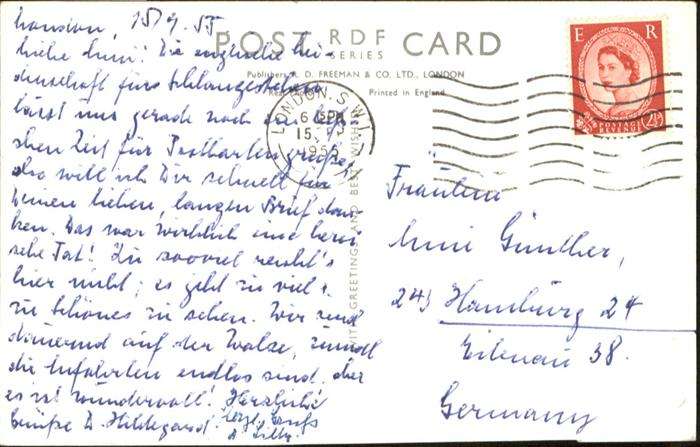 London, 15/9.55
Liebe Anni! Die englische Lei-
denschaft fürs Schlangestehen
lässt uns gerade noch ein
chen Zeit für Postkartengrüsse,
also will ich Dir schnell für
Deinen lieben, langen Brief dan-
ken. Das war wirklich eine heroi-
sche Tat! Zu soooviel reicht's
hier nicht; es gibt zu viel
zu Schönes zu sehen. Wir sind
dauernd auf der Walze, zumal
die Anfahrten endlos sind. Aber
es ist wundervoll! Herzliche
Grüße D. Hildegard.
Herzl. Gruß
D. Lilly.
POST CARD
RDF
SERIES
Publishers R. D. FREEMAN & CO. LTD., LONDON
Printed in England
WITH GREETINGS AND BEST WISHES
LONDON. S.W.1
6 PM
15
1955
E R
POSTAGE
REVENUE
2½
Fräulein
Anni Günther,
24a Hamburg 24
Eilenau 38.
Germany